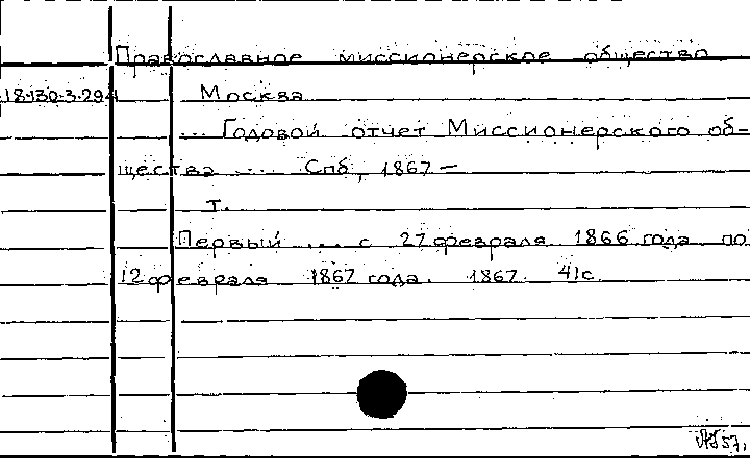 Православное миссионерское общество
18.130.3.294 Москва
... Годовой отчет Миссионерского об-
щества ... Спб, 1867 –
Т.
Первый ... с 27 февраля 1866 года по
12 февраля 1867 года. 1867. 41с.
57.